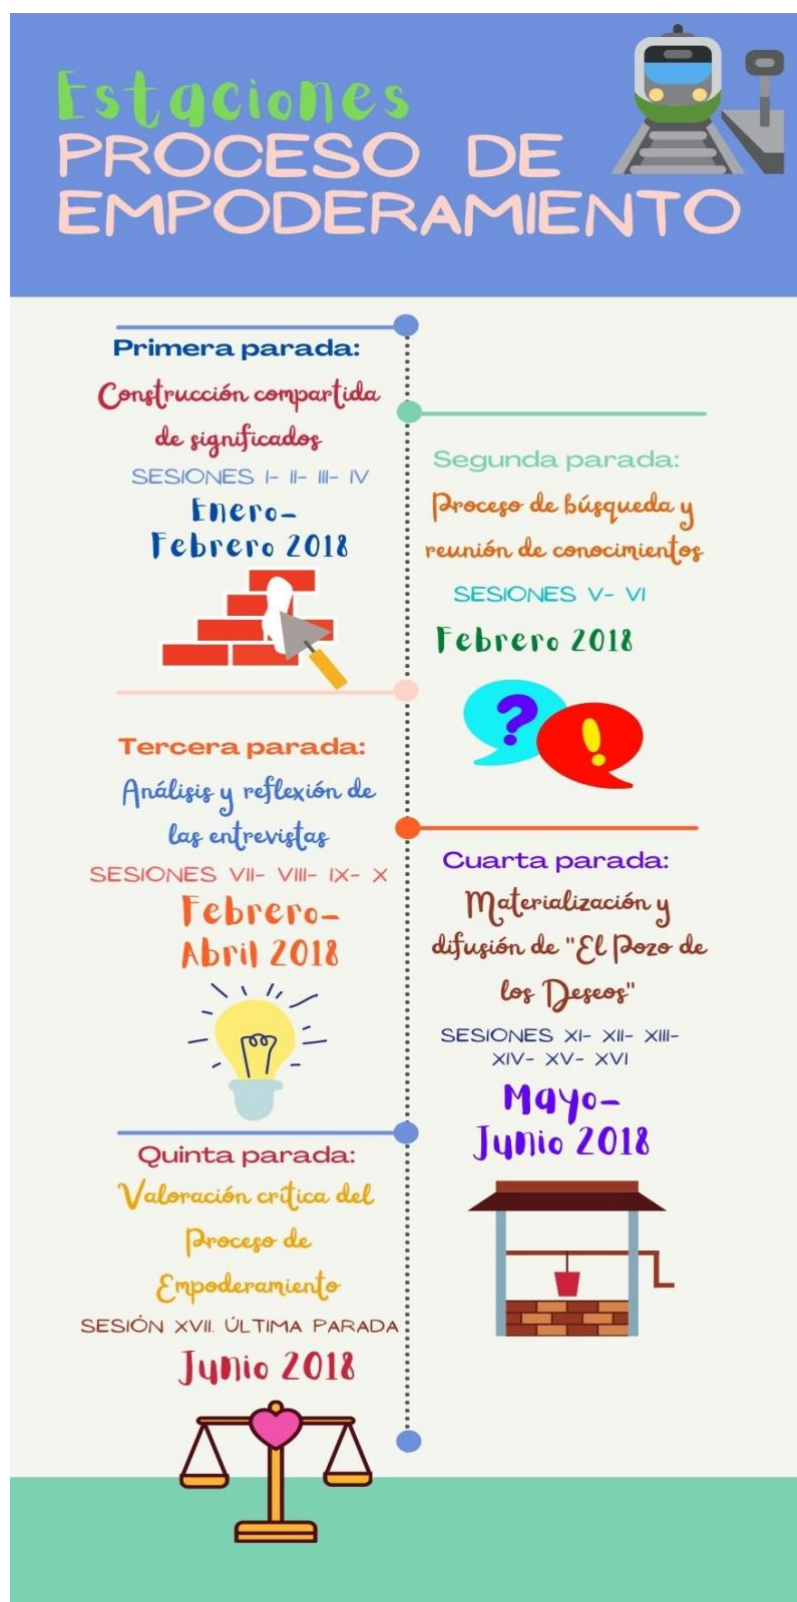 Estaciones
PROCESO DE
EMPODERAMIENTO
Primera parada:
Construcción compartida
de significados
SESIONES I- II- III- IV
Enero-
Febrero 2018
Segunda parada:
Proceso de búsqueda y
reunión de conocimientos
SESIONES V- VI
Febrero 2018
?
!
Tercera parada:
Análisis y reflexión de
las entrevistas
SESIONES VII- VIII- IX- X
Febrero-
Abril 2018
Cuarta parada:
Materialización y
difusión de "El Pozo de
los Deseos"
SESIONES XI- XII- XIII-
XIV- XV- XVI
Mayo-
Junio 2018
Quinta parada:
Valoración crítica del
Proceso de
Empoderamiento
SESIÓN XVII. ÚLTIMA PARADA
Junio 2018